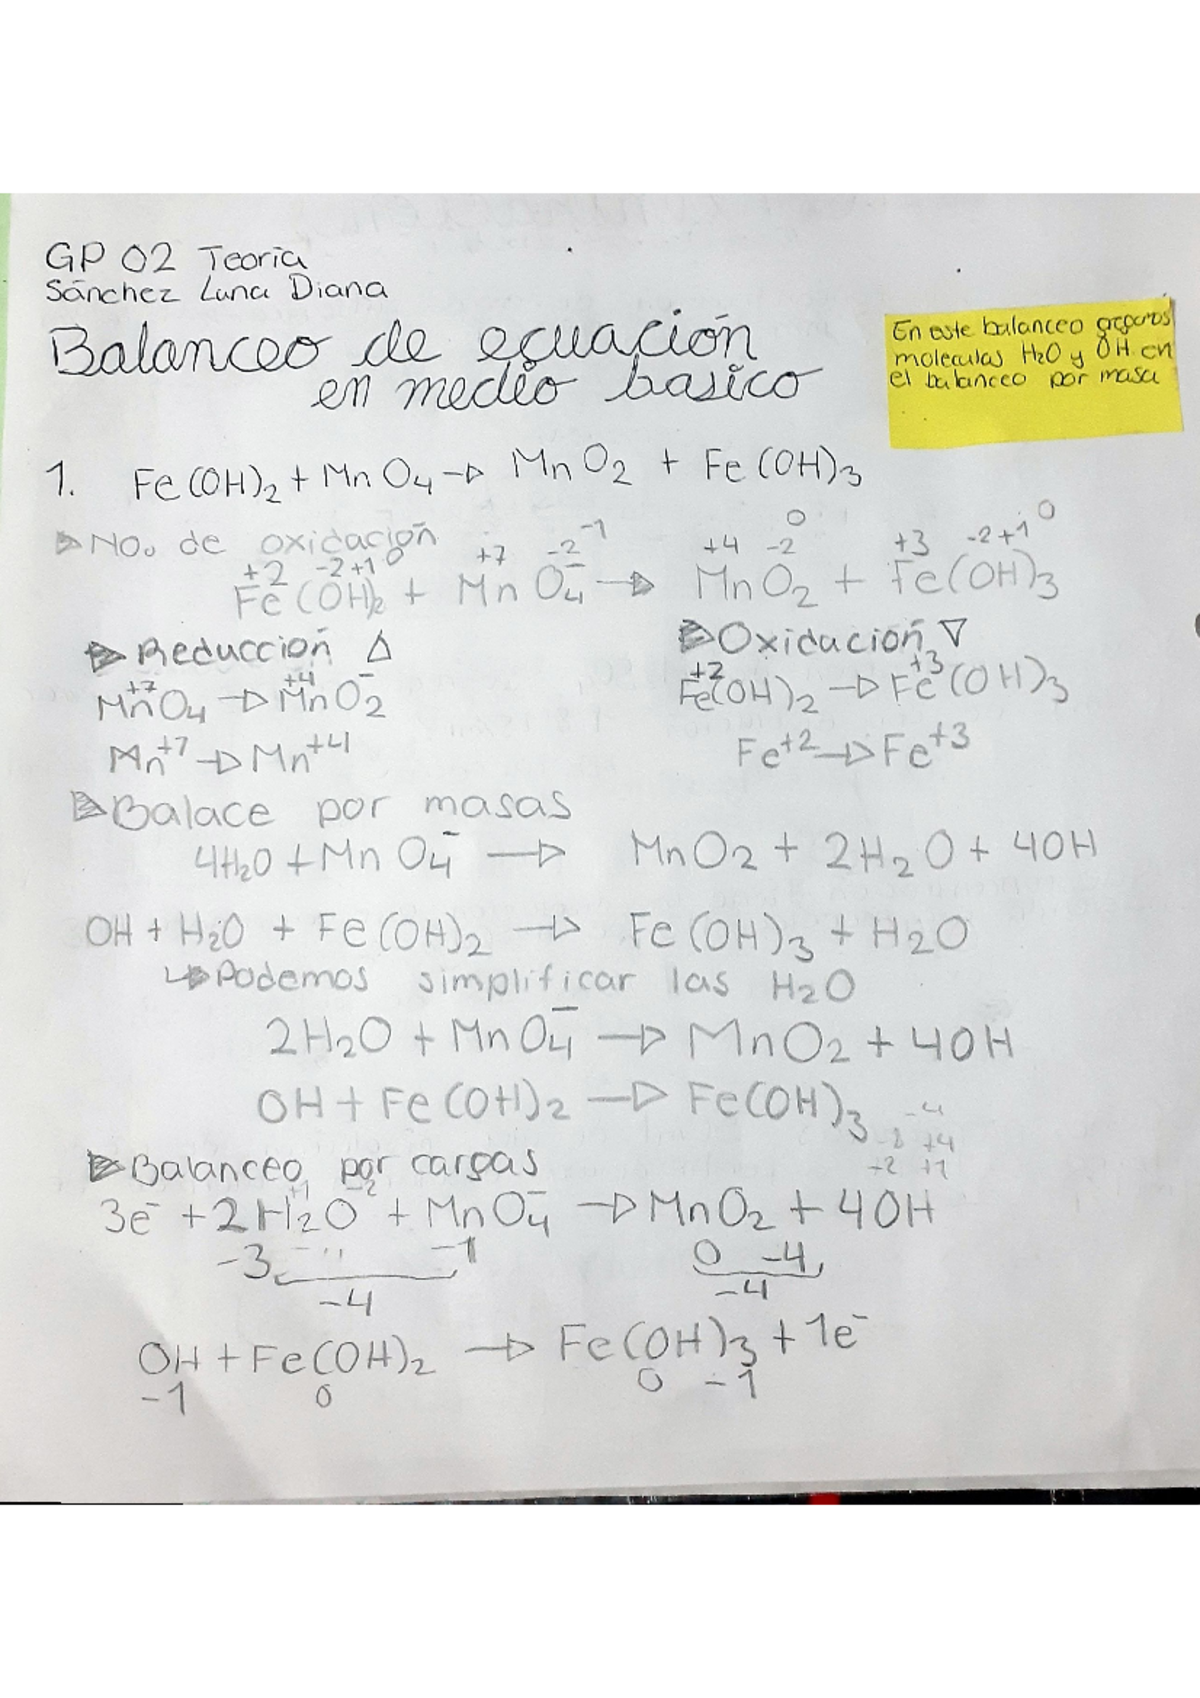 GP 02 Teoria
Sánchez Luna Diana
Balanceo de ecuación
en medio basico
En este balanceo
moleculas H2O y OH en
el balanceo por masa
1. Fe(OH)2 + MnO4 → MnO2 + Fe(OH)3
No. de oxidación
+2 -2+1 0 +7 -2 -1 +4 -2 0 +3 -2+1 0
Fe(OH)2 + MnO4⁻ → MnO2 + Fe(OH)3
Reducción △ Oxidación ▽
+7 +4 +2 +3
MnO4 → MnO2⁻ Fe(OH)2 → Fe(OH)3
Mn+7 → Mn+4 Fe+2 → Fe+3
Balace por masas
4H2O + MnO4⁻ → MnO2 + 2H2O + 4OH
OH + H2O + Fe(OH)2 → Fe(OH)3 + H2O
↳ Podemos simplificar las H2O
2H2O + MnO4⁻ → MnO2 + 4OH
OH + Fe(OH)2 → Fe(OH)3
-4
+4
Balanceo por cargas
+1 -2
3e⁻ + 2H2O + MnO4⁻ → MnO2 + 4OH
-3 -1 0 -4
-4 -4
OH + Fe(OH)2 → Fe(OH)3 + 1e⁻
-1 0 0 -1